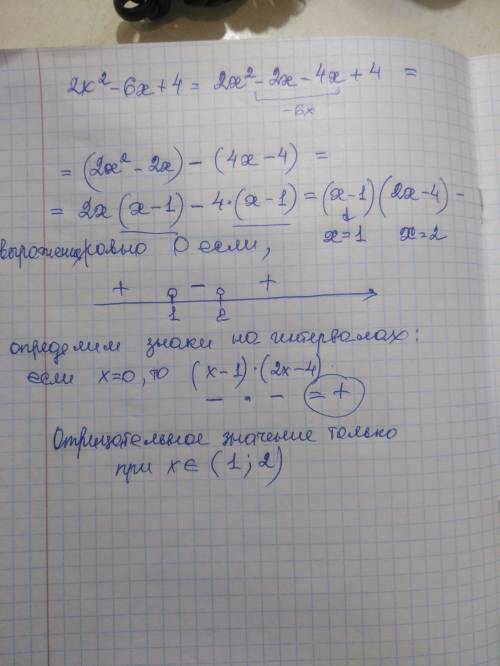 2x² - 6x + 4 = 2x² - 2x - 4x + 4 =
-6x
= (2x² - 2x) - (4x - 4) =
= 2x(x-1) - 4·(x-1) = (x-1)(2x-4) -
x=1 x=2
выражен. равно 0 если,
+ - +
1 2
определим знаки на интервалах:
если x=0, то (x-1)·(2x-4)
- · - = +
Отрицательное значение только
при x ∈ (1; 2)